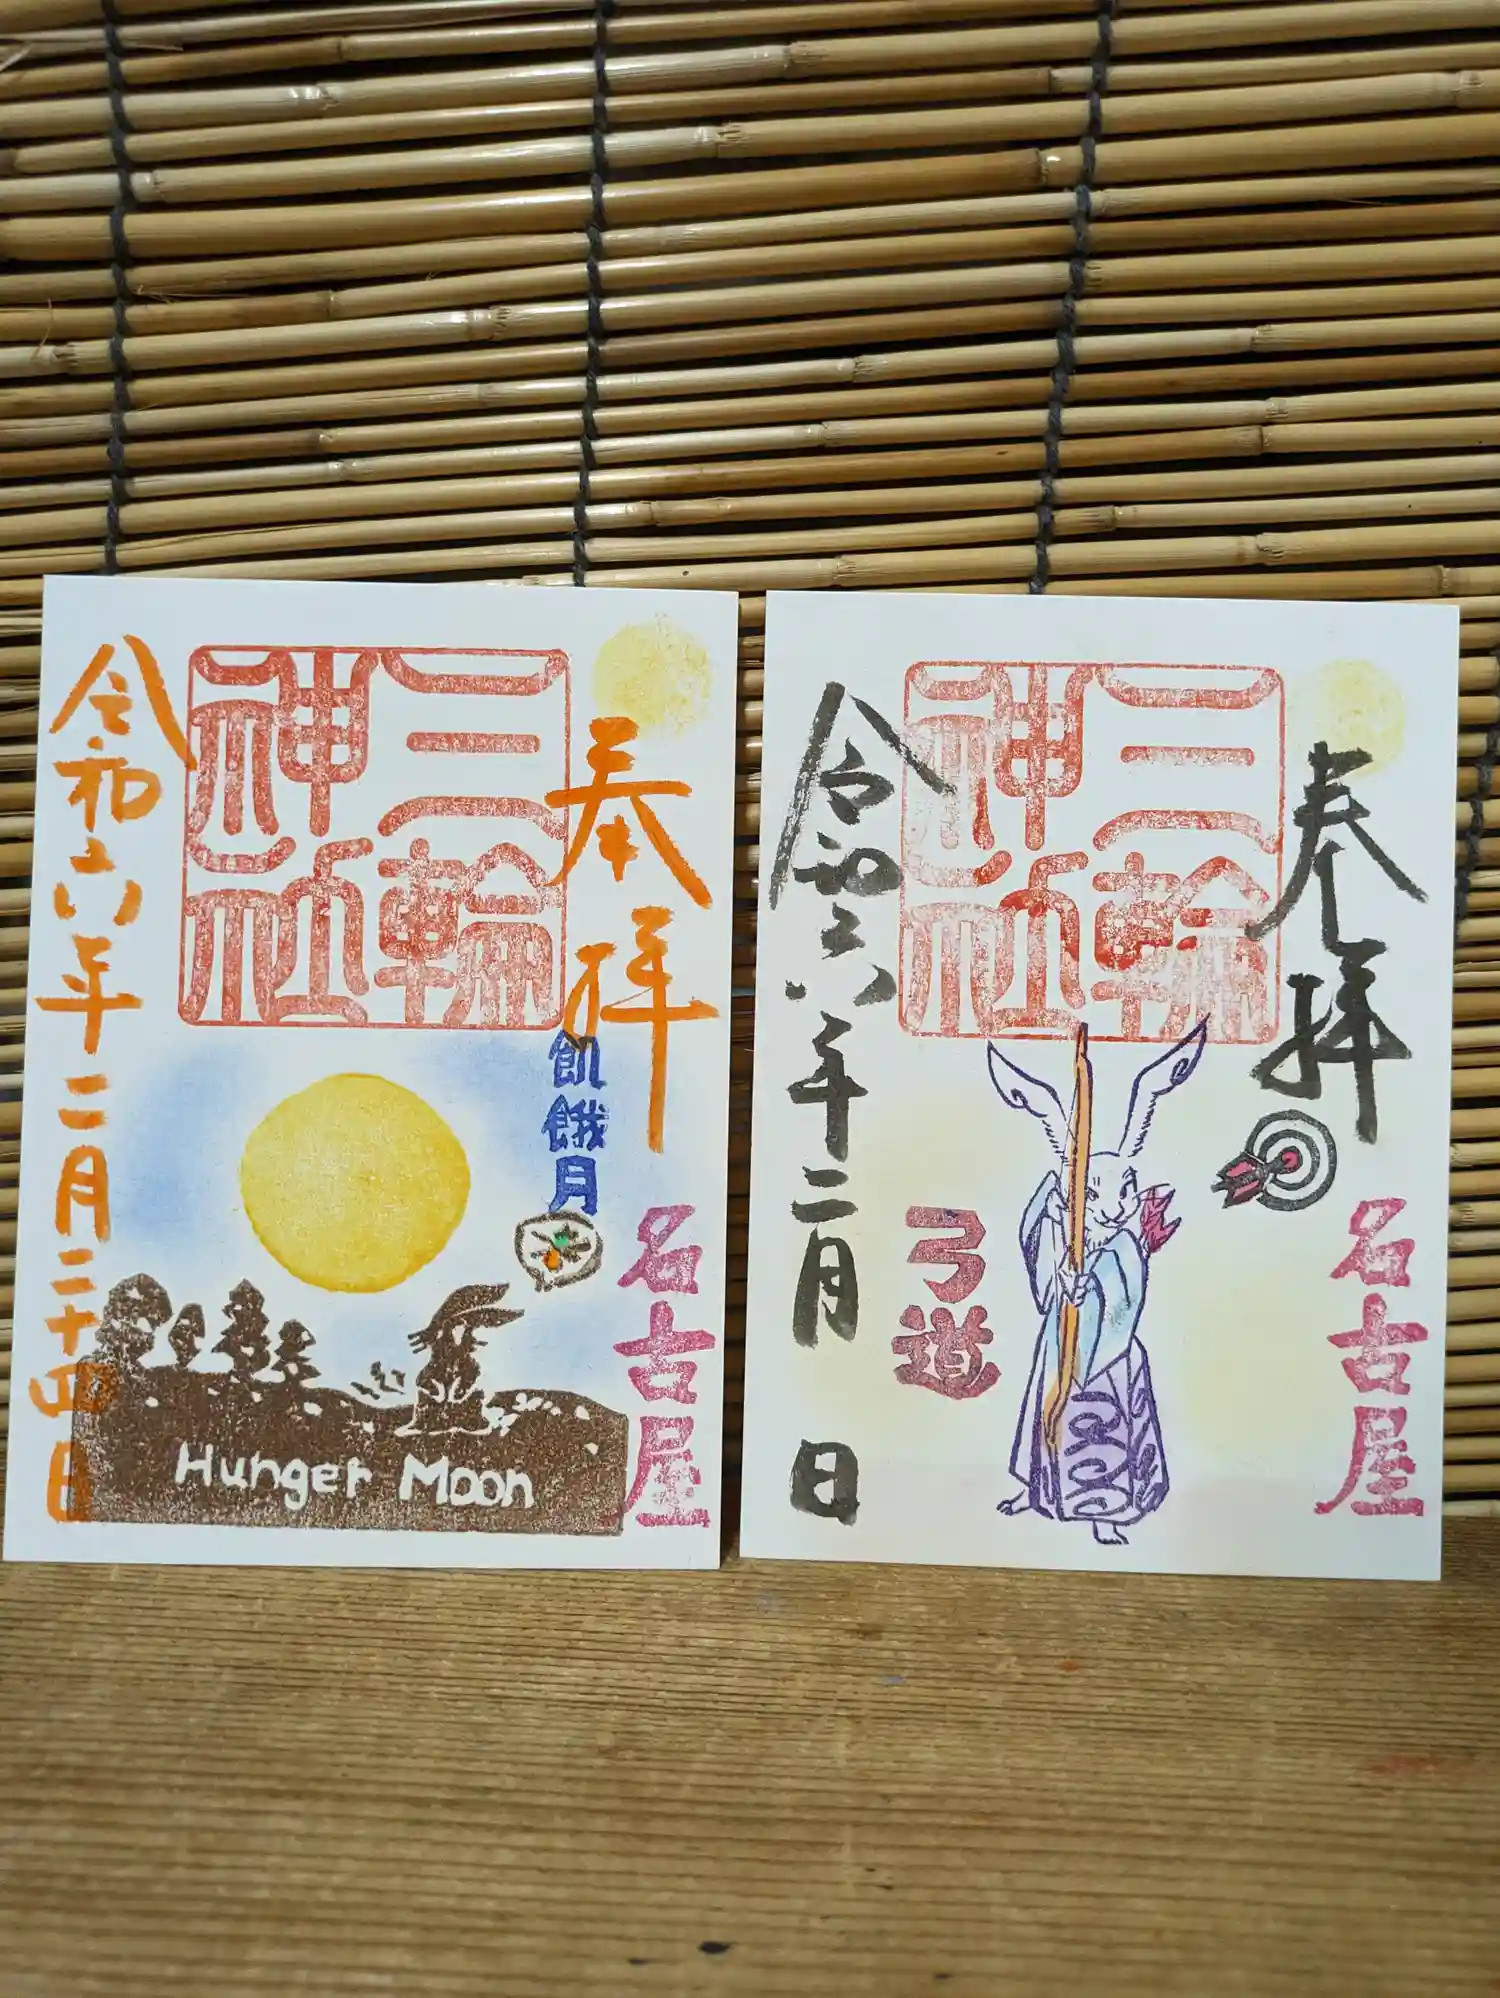 奉拝
三輪
神社
飢餓月
名古屋
Hunger Moon
令和六年二月二十四日
奉拝
三輪
神社
名古屋
弓道
令和六年二月 日